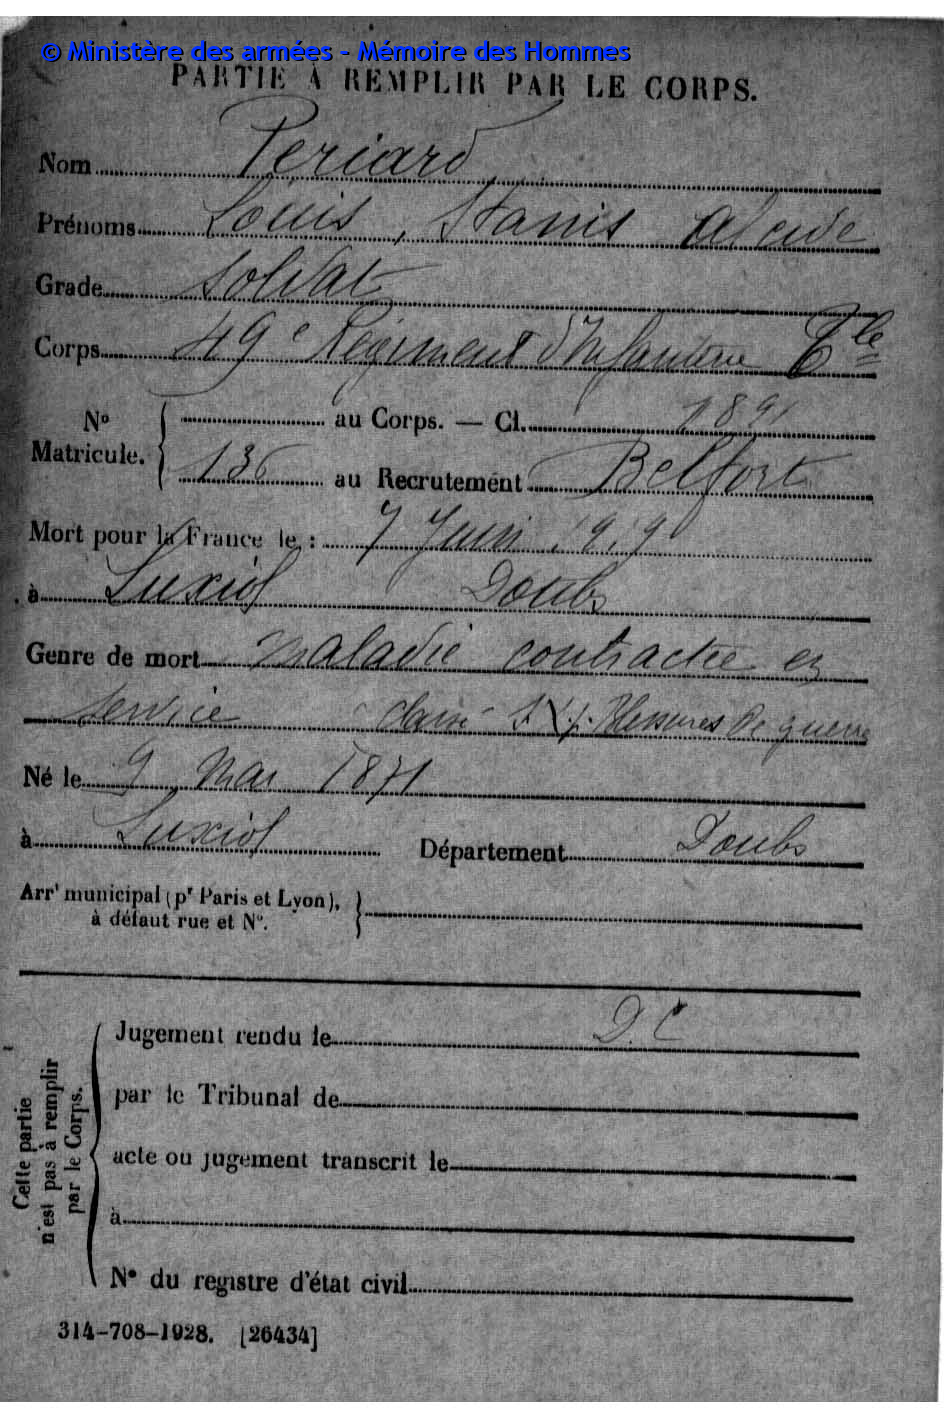 © Ministère des armées - Mémoire des Hommes
PARTIE À REMPLIR PAR LE CORPS.
Nom Periard
Prénoms Louis, Stanis Alcide
Grade Soldat
Corps 49e Régiment d'Infanterie Tle
No Matricule. { au Corps. — Cl. 1891
136 au Recrutement Belfort
Mort pour la France le : 7 Juin 1919
à Luxiol Doubs
Genre de mort maladie contractée en
service classé Blessures de guerre
Né le 9 Mai 1871
à Luxiol Département Doubs
Arrt municipal (pr Paris et Lyon),
à défaut rue et No.
Jugement rendu le D.C
par le Tribunal de
acte ou jugement transcrit le
à
No du registre d'état civil
Cette partie
n'est pas à remplir
par le Corps.
314-708-1928. [26434]